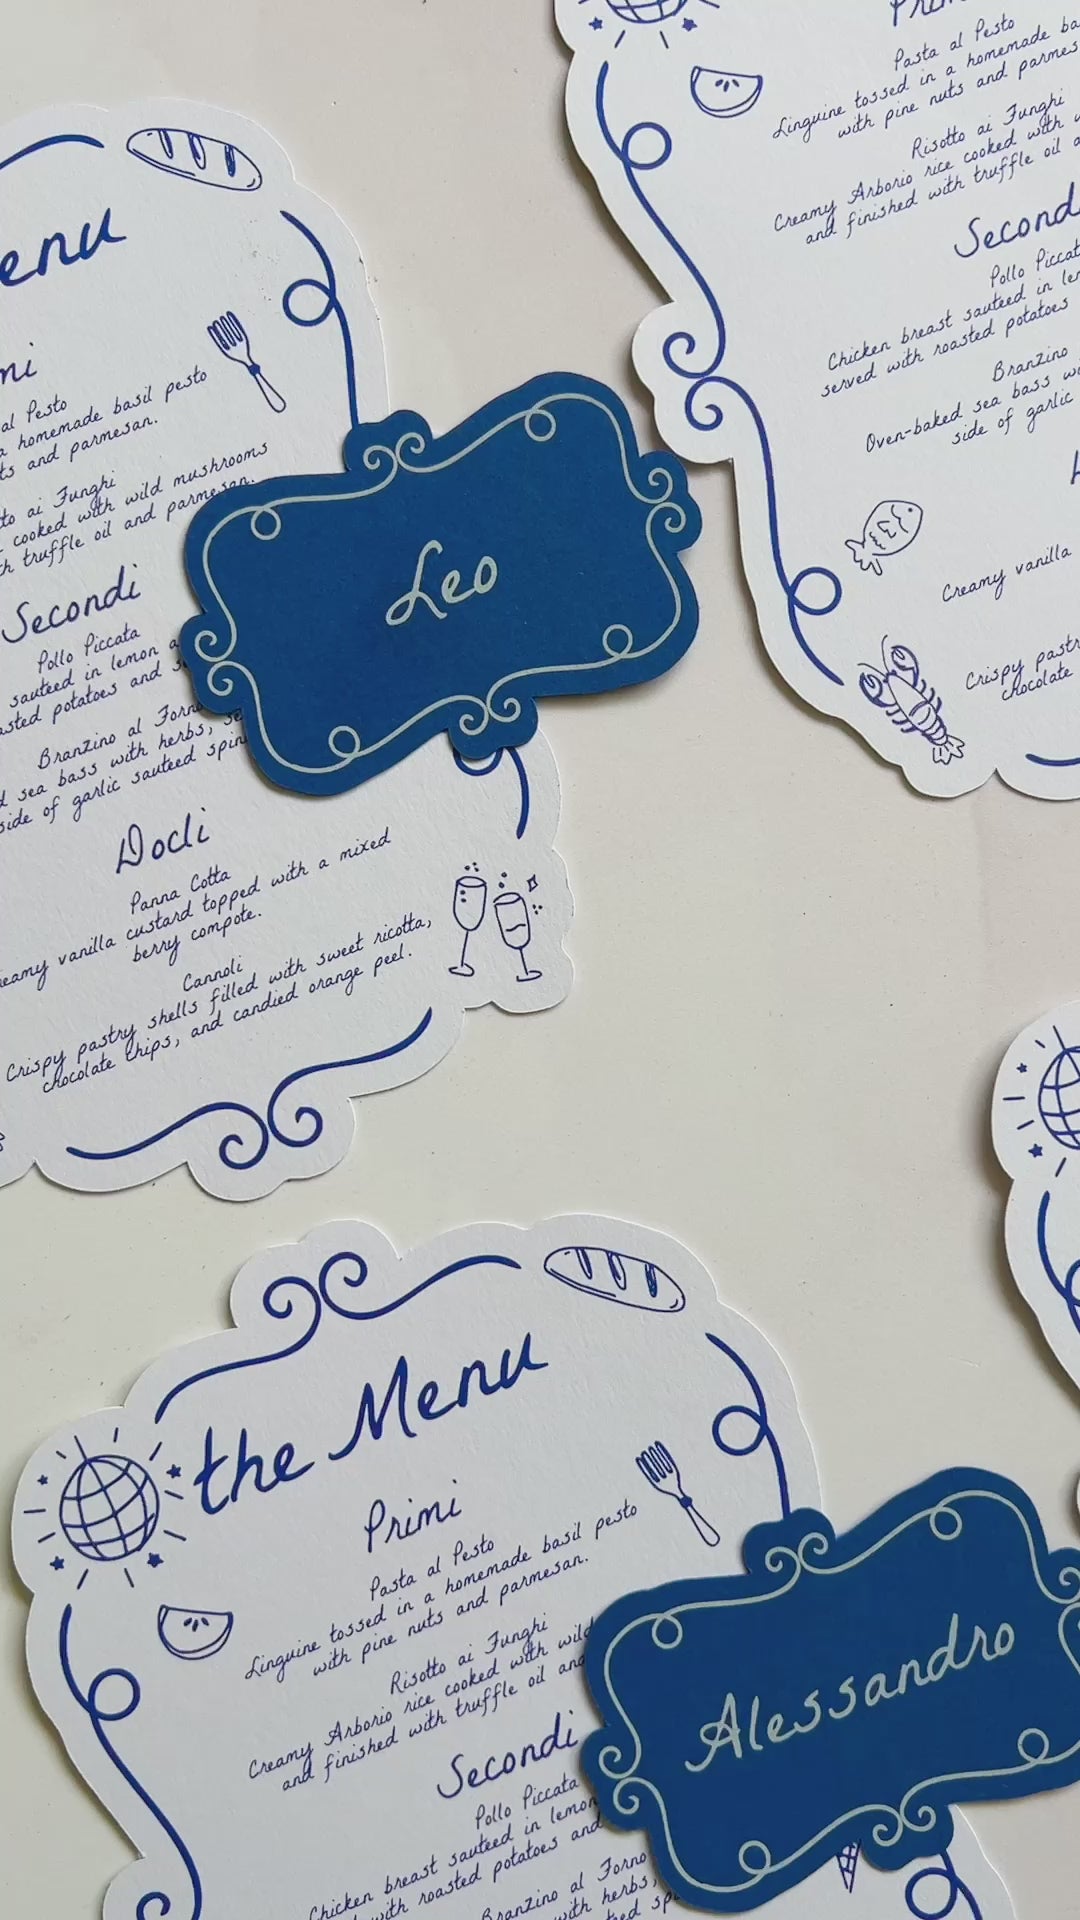 enu
mi
al Pesto
a homemade basil pesto
ts and parmesan.
to ai Funghi
cooked with wild mushrooms
th truffle oil and parmesan.
Secondi
Pollo Piccata
sauteed in lemon a
asted potatoes and s
Branzino al Forno
d sea bass with herbs, se
side of garlic sauteed spin
Docli
Panna Cotta
reamy vanilla custard topped with a mixed
berry compote.
Cannoli
Crispy pastry shells filled with sweet ricotta,
chocolate chips, and candied orange peel.
Leo
Prim
Pasta al Pesto
Linguine tossed in a homemade ba
with pine nuts and parmes
Risotto ai Funghi
Creamy Arborio rice cooked with w
and finished with truffle oil a
Second
Pollo Piccat
Chicken breast sauteed in lem
served with roasted potatoes
Branzino
Oven-baked sea bass w
side of garlic
Creamy vanilla
Crispy past
chocolate
the Menu
Primi
Pasta al Pesto
Linguine tossed in a homemade basil pesto
with pine nuts and parmesan.
Risotto ai Funghi
Creamy Arborio rice cooked with wild
and finished with truffle oil and
Secondi
Pollo Piccata
Chicken breast sauteed in lemon
with roasted potatoes and
Branzino al Forno
with herbs,
ed sp
Alessandro